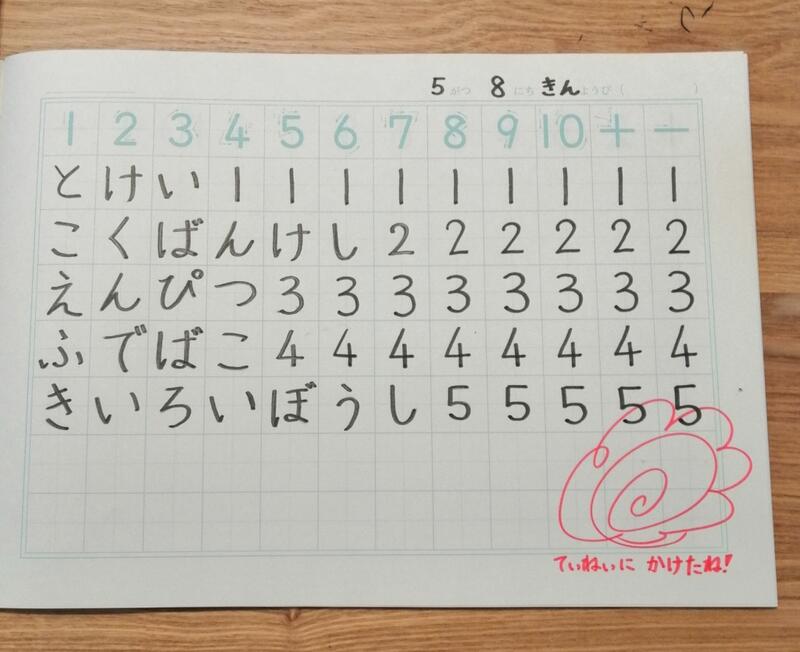 5がつ 8にち きんようび( )
1 2 3 4 5 6 7 8 9 10 + −
とけい111111111
こくばんけし222222
えんぴつ33333333
ふでばこ44444444
きいろいぼうし55555
ていねいに かけたね!